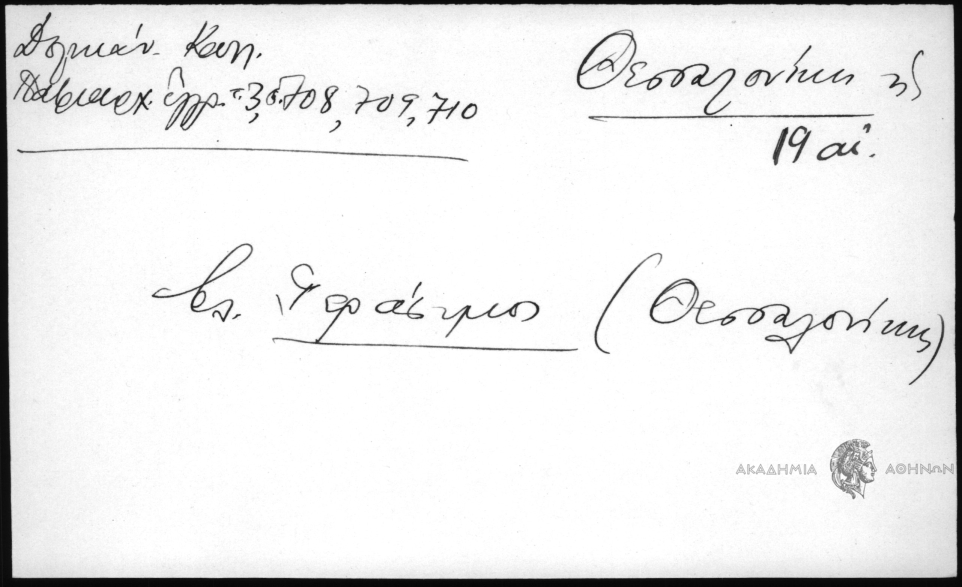 Δελικάν. Καλ.
Πατριαρχ. ἔγγρ. τ. 3, σ. 708, 709, 710
Θεσσαλονίκης
19 αἰ.
βλ. Γεράσιμος (Θεσσαλονίκης)
ΑΚΑΔΗΜΙΑ ΑΘΗΝΩΝ